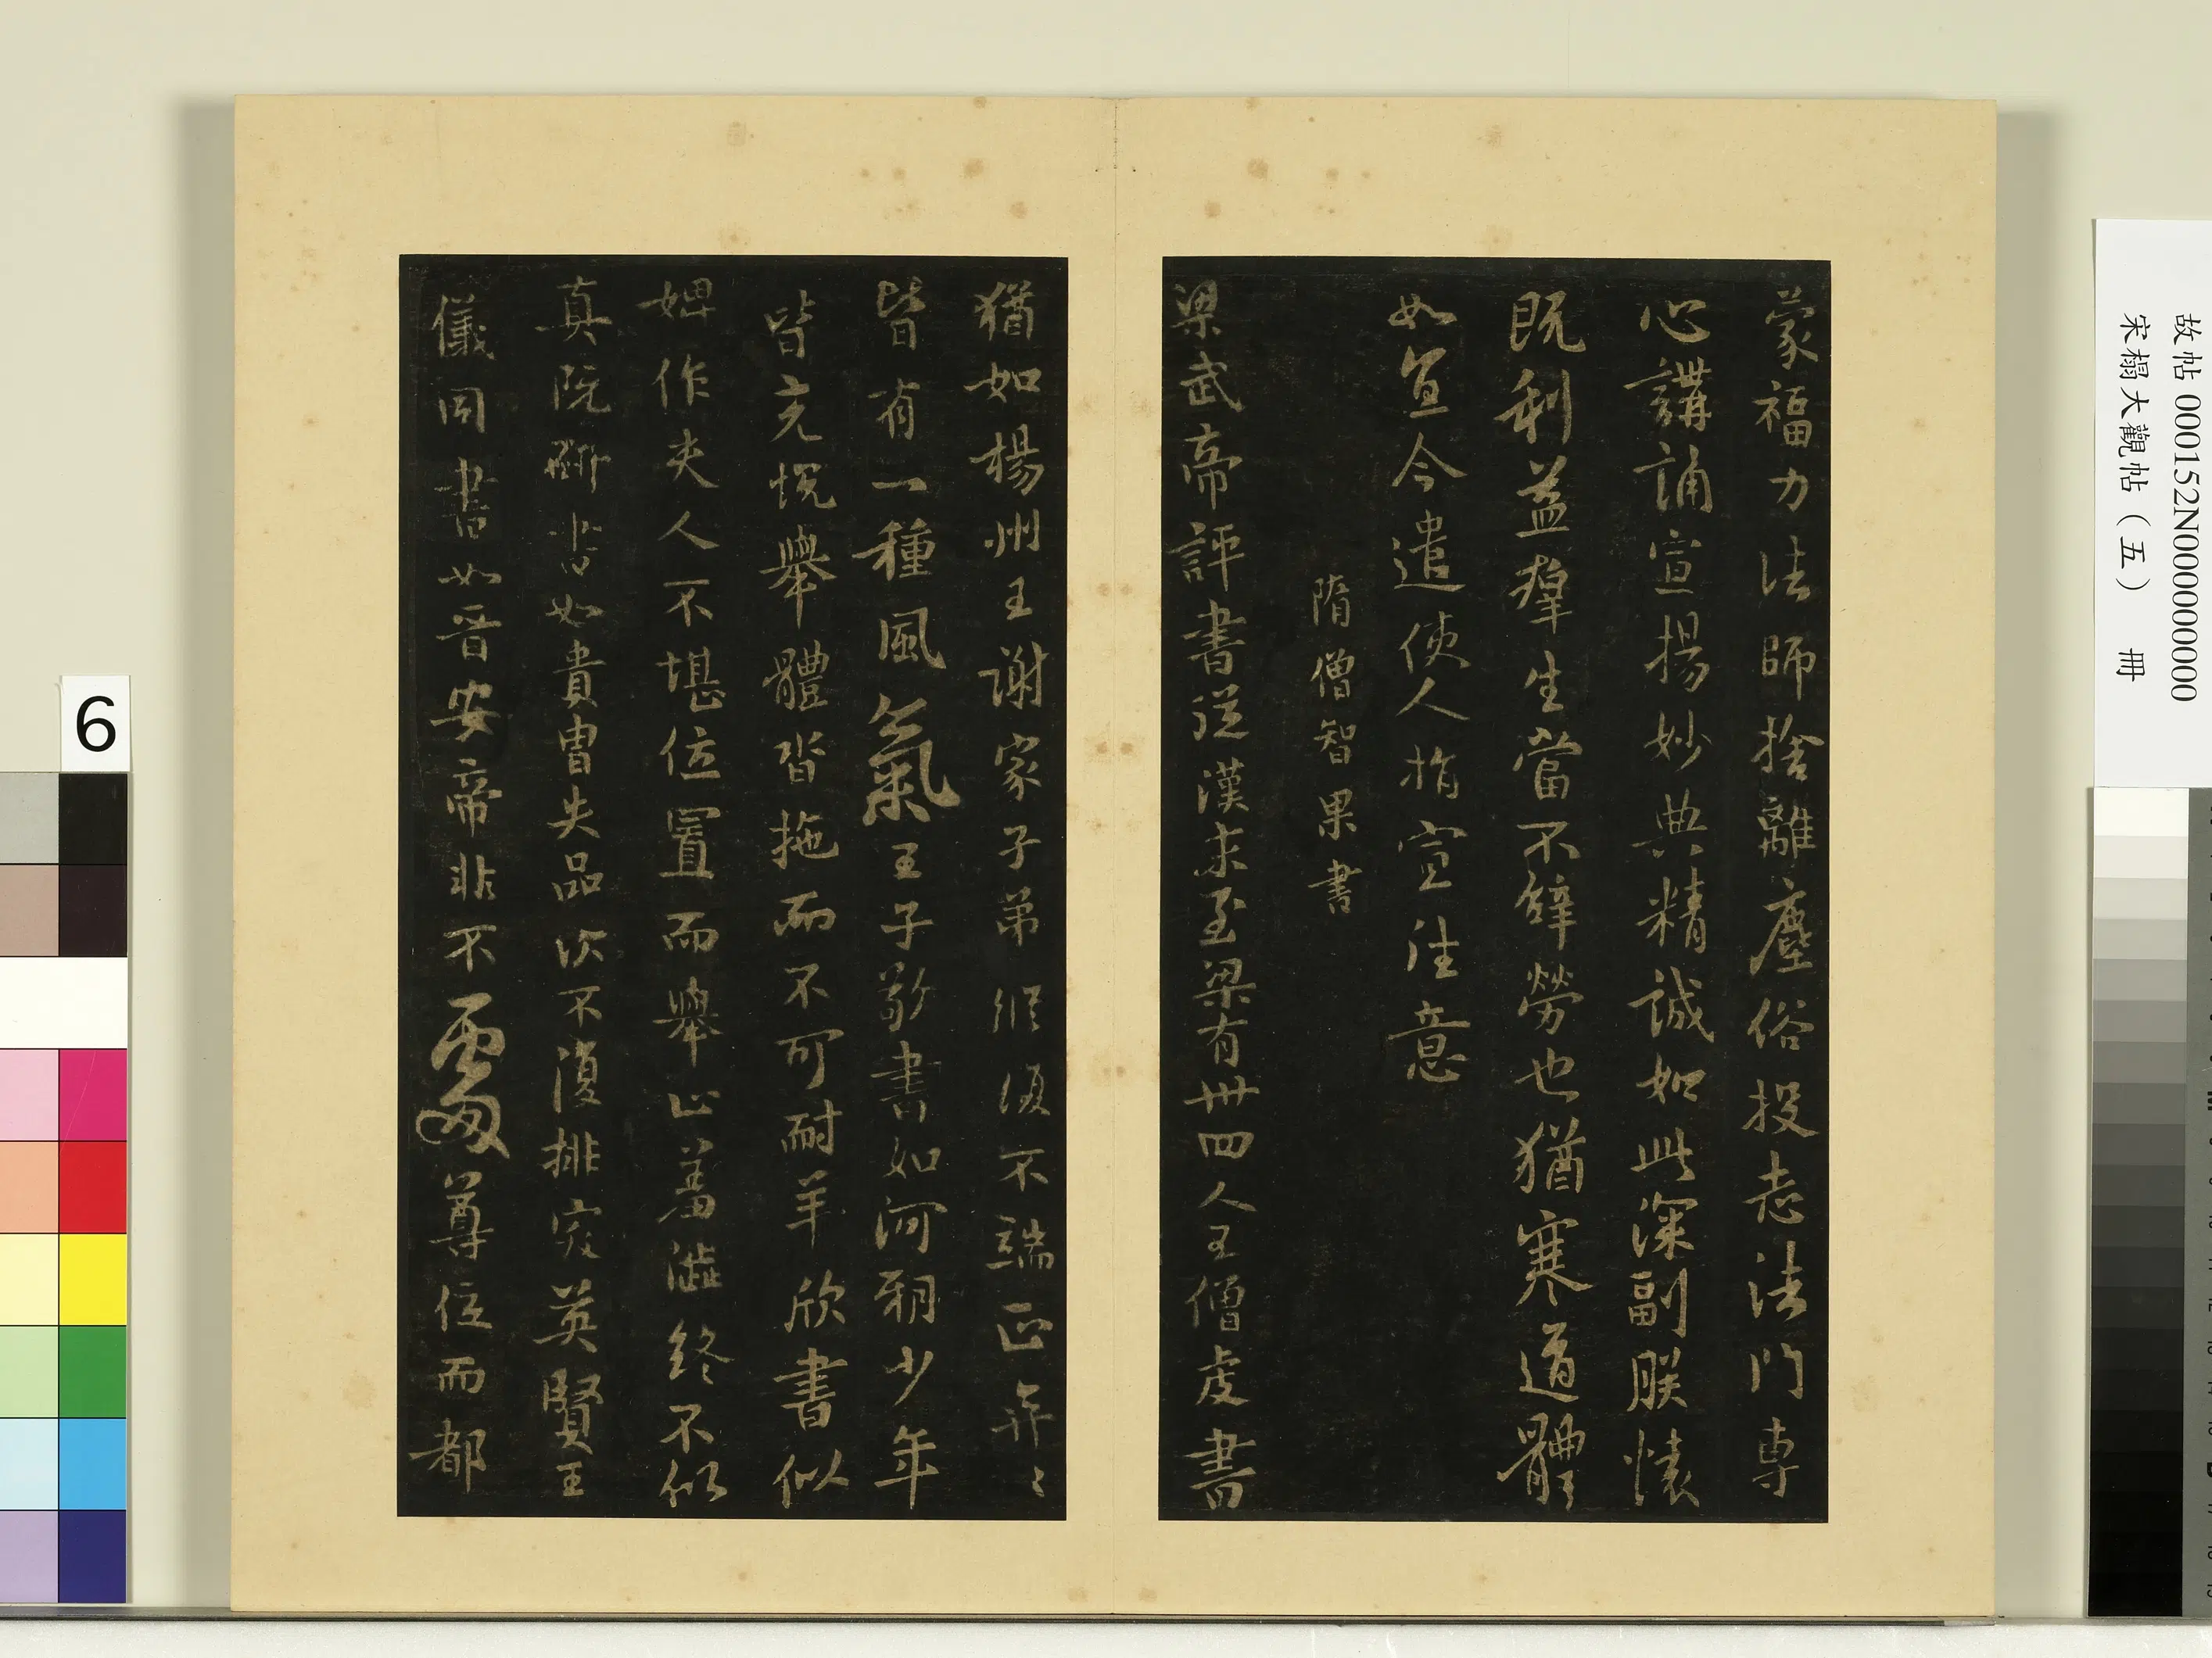 蒙福力法師捨離塵俗投志法門專
心講誦宣揚妙典精誠如此深副朕懷
既利益群生當不辞勞也猶寒道體
如宜今遣使人指宣往意
隋僧智果書
梁武帝評書從漢末至梁有卅四人王僧虔書
猶如楊州王謝家子弟縱復不端正弈〻
皆有一種風氣王子敬書如河朔少年
皆充悅舉體沓拖而不可耐羊欣書似
婢作夫人不堪位置而舉止羞澁終不似
真阮研書如貴胄失品次不復排突英賢王
儀同書如晉安帝非不處尊位而都
故帖 000152N000000000
宋榻大觀帖（五） 冊
6